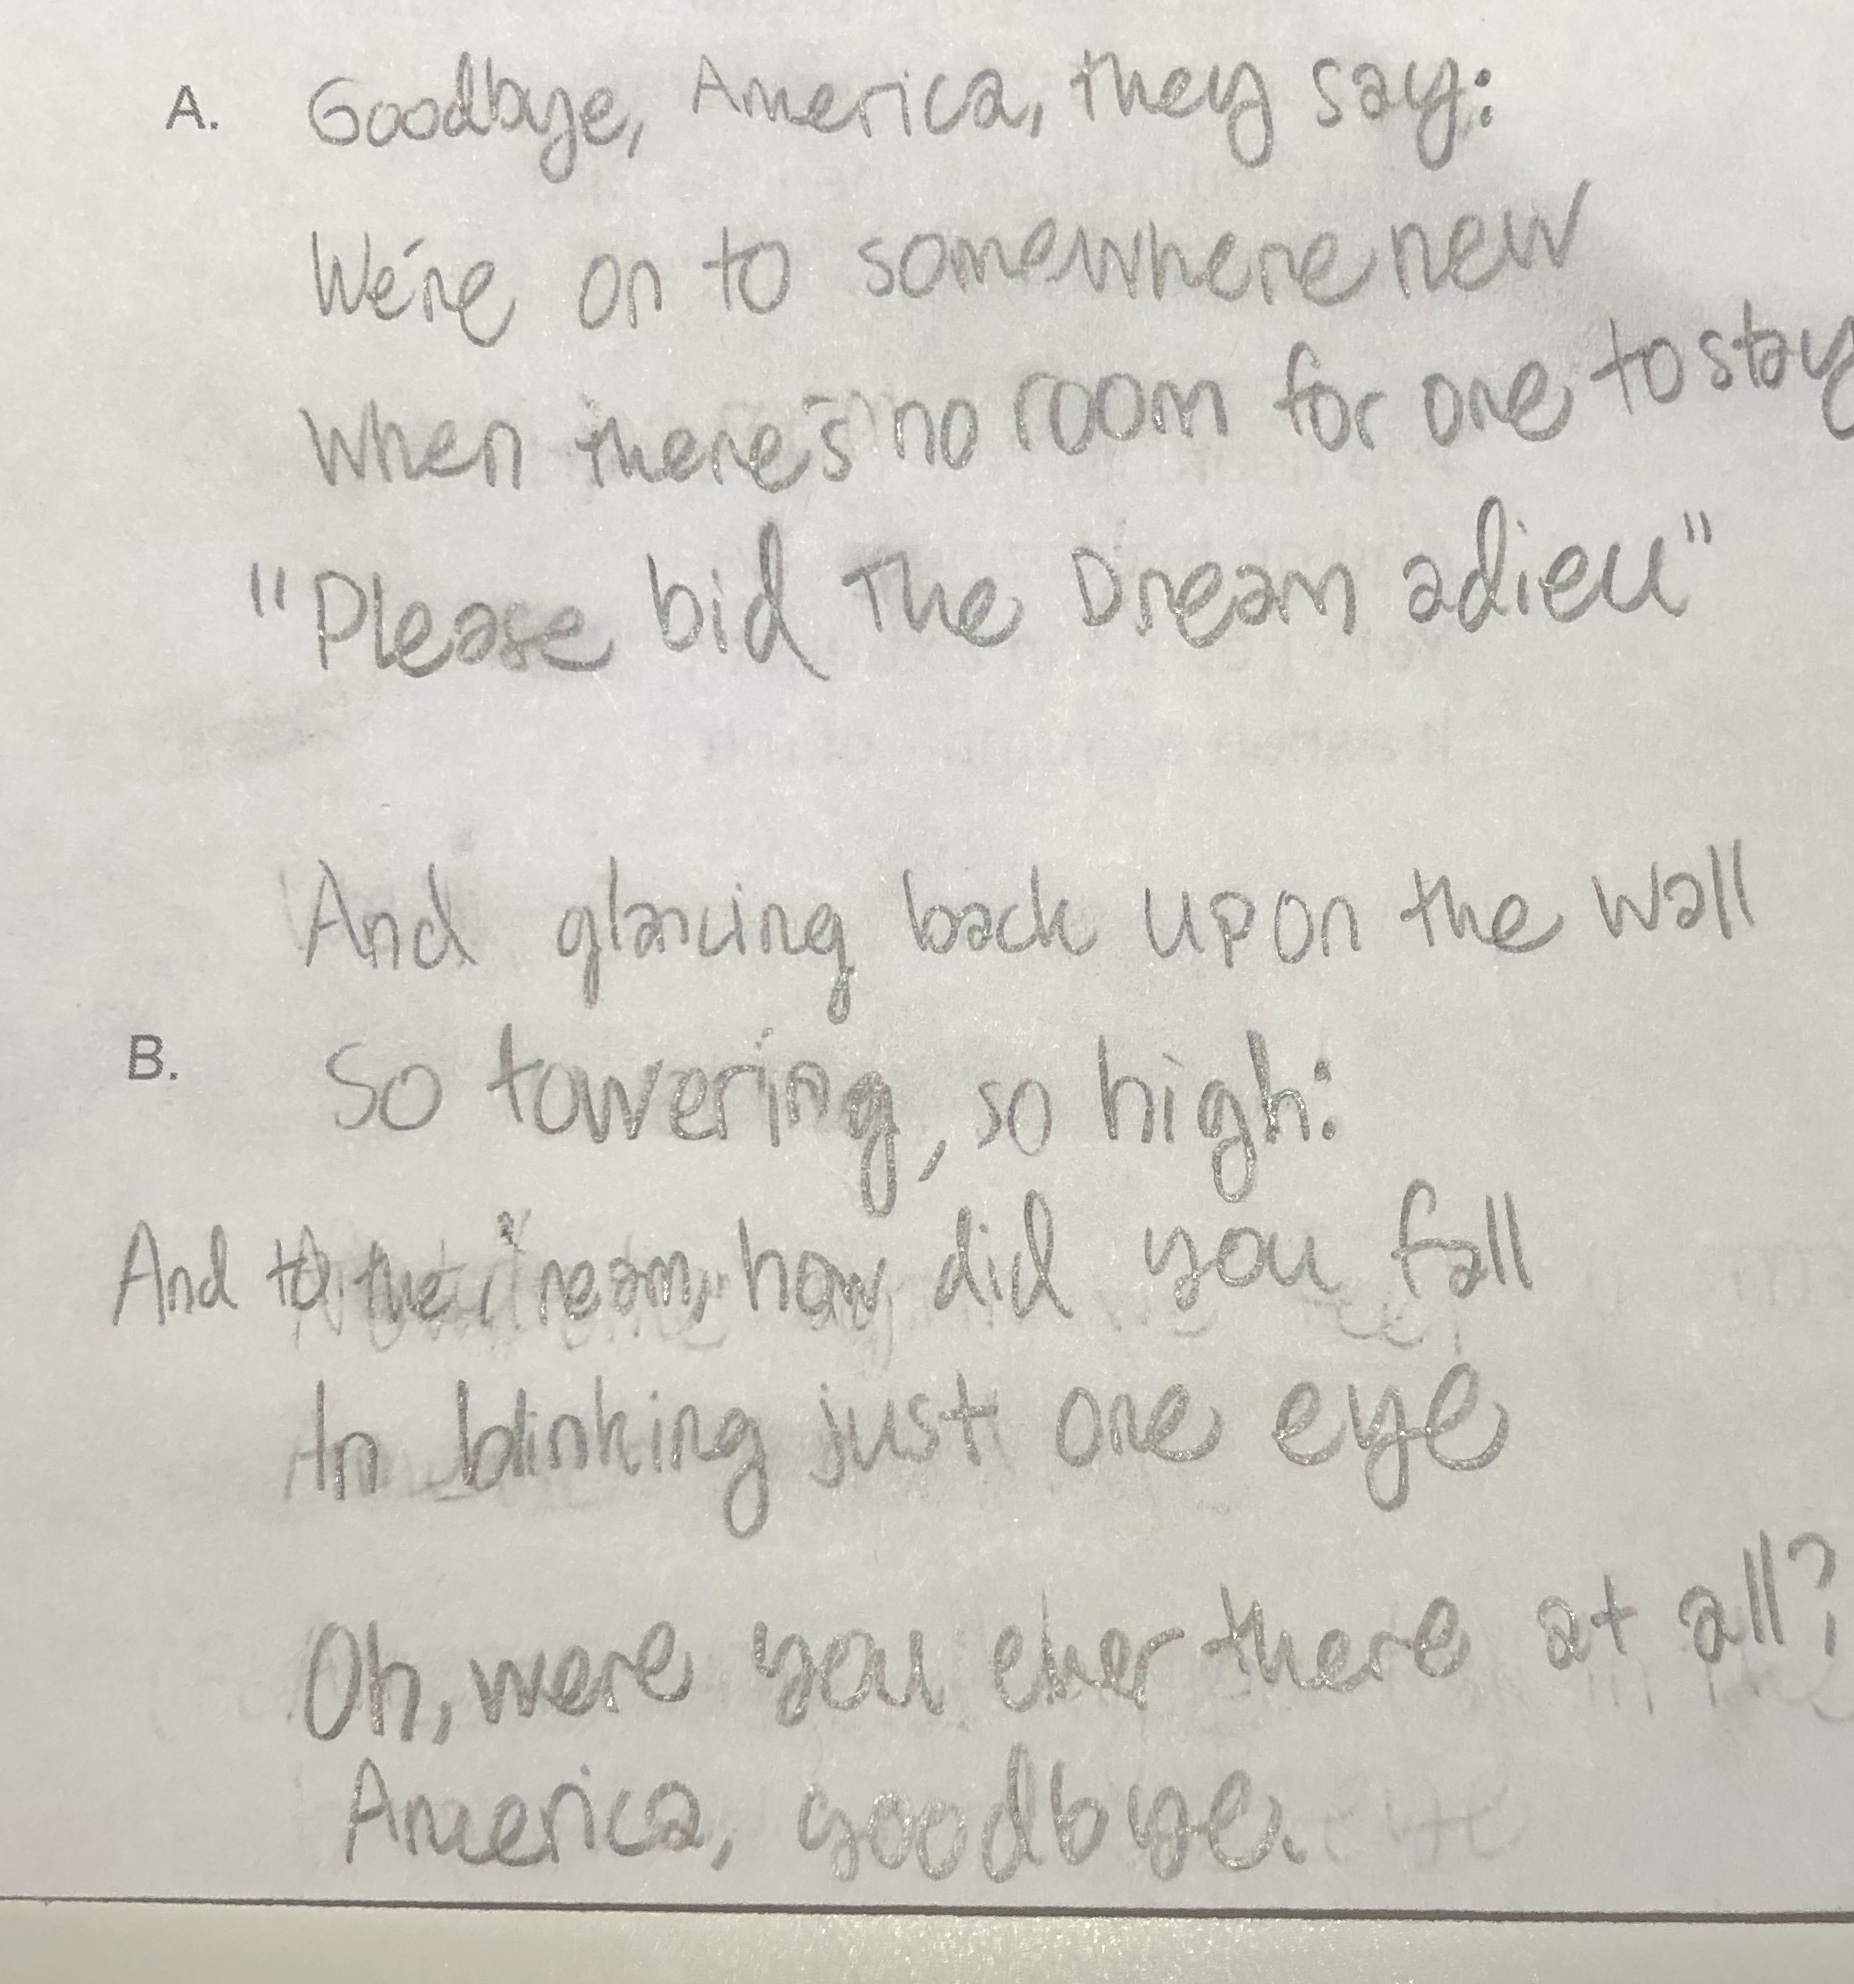 A. Goodbye, America, they say:
We're on to somewhere new
When there's no room for one to stay
"Please bid The Dream adieu"
And glancing back upon the wall
B. So towering, so high:
And to the Dream, how did you fall
In blinking just one eye
Oh, were you ever there at all?
America, goodbye.